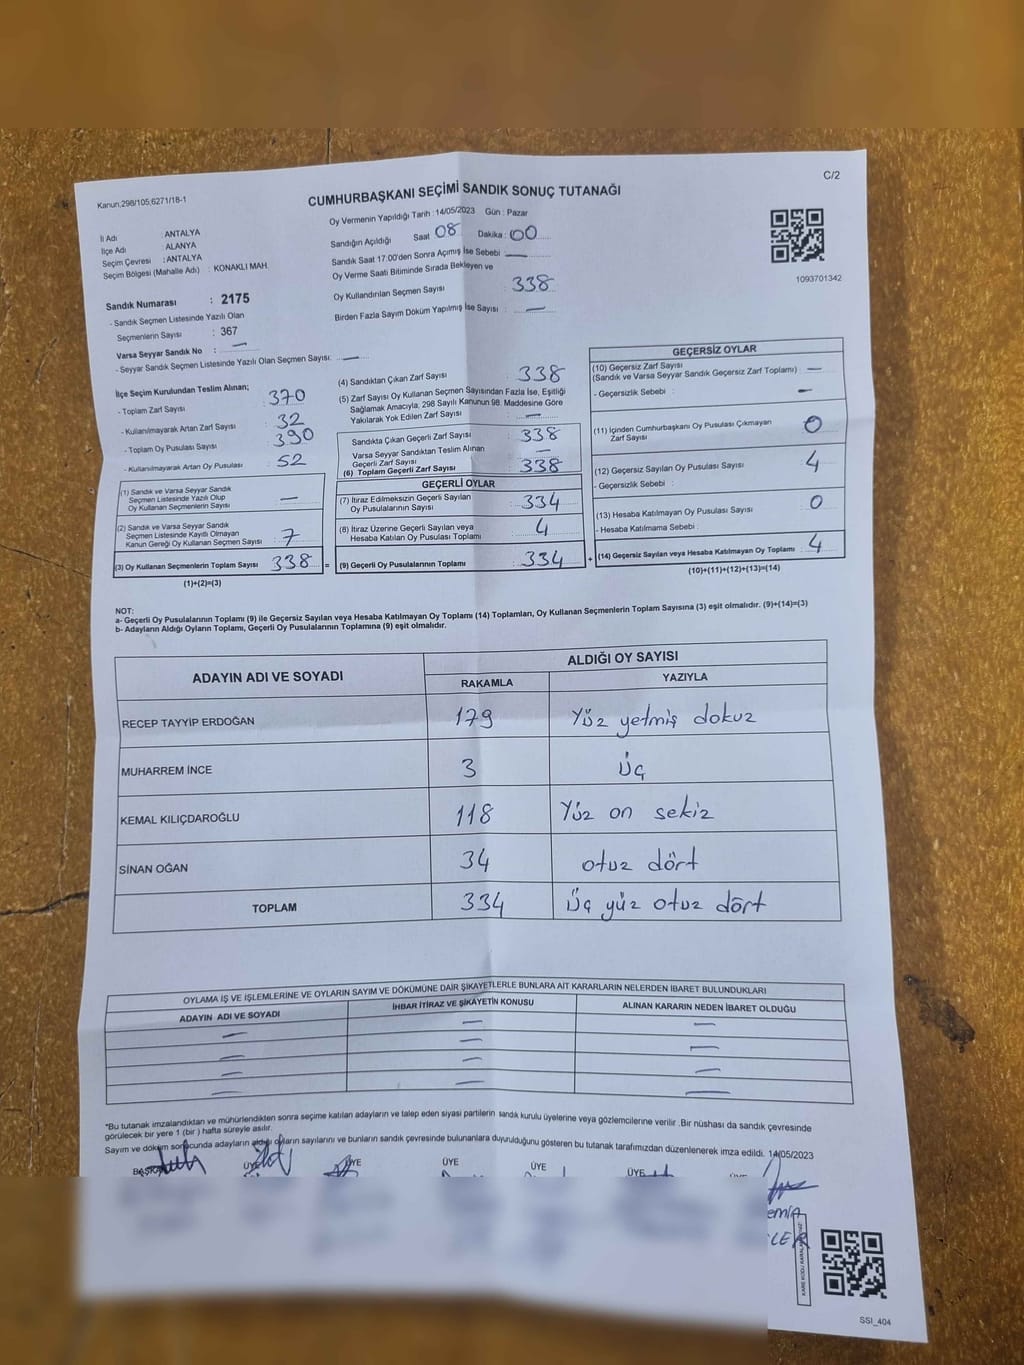 Kanun,298/105;6271/18-1
C/2
CUMHURBAŞKANI SEÇİMİ SANDIK SONUÇ TUTANAĞI
Oy Vermenin Yapıldığı Tarih : 14/05/2023 Gün : Pazar
İl Adı : ANTALYA
İlçe Adı : ALANYA
Seçim Çevresi : ANTALYA
Seçim Bölgesi (Mahalle Adı) : KONAKLI MAH.
Sandığın Açıldığı Saat 08 Dakika : 00
Sandık Saat 17:00'den Sonra Açılmış İse Sebebi —
Oy Verme Saati Bitiminde Sırada Bekleyen ve
Oy Kullandırılan Seçmen Sayısı 338
Birden Fazla Sayım Döküm Yapılmış İse Sayısı : —
1093701342
Sandık Numarası : 2175
- Sandık Seçmen Listesinde Yazılı Olan
Seçmenlerin Sayısı : 367
Varsa Seyyar Sandık No : —
- Seyyar Sandık Seçmen Listesinde Yazılı Olan Seçmen Sayısı: —
İlçe Seçim Kurulundan Teslim Alınan;
- Toplam Zarf Sayısı : 370
- Kullanılmayarak Artan Zarf Sayısı : 32
- Toplam Oy Pusulası Sayısı : 390
- Kullanılmayarak Artan Oy Pusulası : 52
(1) Sandık ve Varsa Seyyar Sandık
Seçmen Listesinde Yazılı Olup
Oy Kullanan Seçmenlerin Sayısı : —
(2) Sandık ve Varsa Seyyar Sandık
Seçmen Listesinde Kayıtlı Olmayan
Kanun Gereği Oy Kullanan Seçmen Sayısı : 7
(3) Oy Kullanan Seçmenlerin Toplam Sayısı : 338 =
(1)+(2)=(3)
(4) Sandıktan Çıkan Zarf Sayısı : 338
(5) Zarf Sayısı Oy Kullanan Seçmen Sayısından Fazla İse, Eşitliği
Sağlamak Amacıyla, 298 Sayılı Kanunun 98. Maddesine Göre
Yakılarak Yok Edilen Zarf Sayısı : —
Sandıkta Çıkan Geçerli Zarf Sayısı : 338
Varsa Seyyar Sandıktan Teslim Alınan
Geçerli Zarf Sayısı : —
(6) Toplam Geçerli Zarf Sayısı : 338
GEÇERLİ OYLAR
(7) İtiraz Edilmeksizin Geçerli Sayılan
Oy Pusulalarının Sayısı : 334
(8) İtiraz Üzerine Geçerli Sayılan veya
Hesaba Katılan Oy Pusulası Toplamı : 4
(9) Geçerli Oy Pusulalarının Toplamı : 334 +
GEÇERSİZ OYLAR
(10) Geçersiz Zarf Sayısı
(Sandık ve Varsa Seyyar Sandık Geçersiz Zarf Toplamı) : —
- Geçersizlik Sebebi : —
(11) İçinden Cumhurbaşkanı Oy Pusulası Çıkmayan
Zarf Sayısı : 0
(12) Geçersiz Sayılan Oy Pusulası Sayısı : 4
- Geçersizlik Sebebi :
(13) Hesaba Katılmayan Oy Pusulası Sayısı : 0
- Hesaba Katılmama Sebebi :
(14) Geçersiz Sayılan veya Hesaba Katılmayan Oy Toplamı : 4
(10)+(11)+(12)+(13)=(14)
NOT:
a- Geçerli Oy Pusulalarının Toplamı (9) ile Geçersiz Sayılan veya Hesaba Katılmayan Oy Toplamı (14) Toplamları, Oy Kullanan Seçmenlerin Toplam Sayısına (3) eşit olmalıdır. (9)+(14)=(3)
b- Adayların Aldığı Oyların Toplamı, Geçerli Oy Pusulalarının Toplamına (9) eşit olmalıdır.
ADAYIN ADI VE SOYADI ALDIĞI OY SAYISI
RAKAMLA YAZIYLA
RECEP TAYYİP ERDOĞAN 179 Yüz yetmiş dokuz
MUHARREM İNCE 3 Üç
KEMAL KILIÇDAROĞLU 118 Yüz on sekiz
SİNAN OĞAN 34 otuz dört
TOPLAM 334 Üç yüz otuz dört
OYLAMA İŞ VE İŞLEMLERİNE VE OYLARIN SAYIM VE DÖKÜMÜNE DAİR ŞİKAYETLERLE BUNLARA AİT KARARLARIN NELERDEN İBARET BULUNDUKLARI
ADAYIN ADI VE SOYADI İHBAR İTİRAZ VE ŞİKAYETİN KONUSU ALINAN KARARIN NEDEN İBARET OLDUĞU
— — —
— — —
— — —
— — —
*Bu tutanak imzalandıktan ve mühürlendikten sonra seçime katılan adayların ve talep eden siyasi partilerin sandık kurulu üyelerine veya gözlemcilerine verilir .Bir nüshası da sandık çevresinde
görülecek bir yere 1 (bir ) hafta süreyle asılır.
Sayım ve döküm sonucunda adayların aldığı oyların sayılarını ve bunların sandık çevresinde bulunanlara duyurulduğunu gösteren bu tutanak tarafımızdan düzenlenerek imza edildi. 14/05/2023
BAŞKAN ÜYE ÜYE ÜYE ÜYE ÜYE
SSI_404